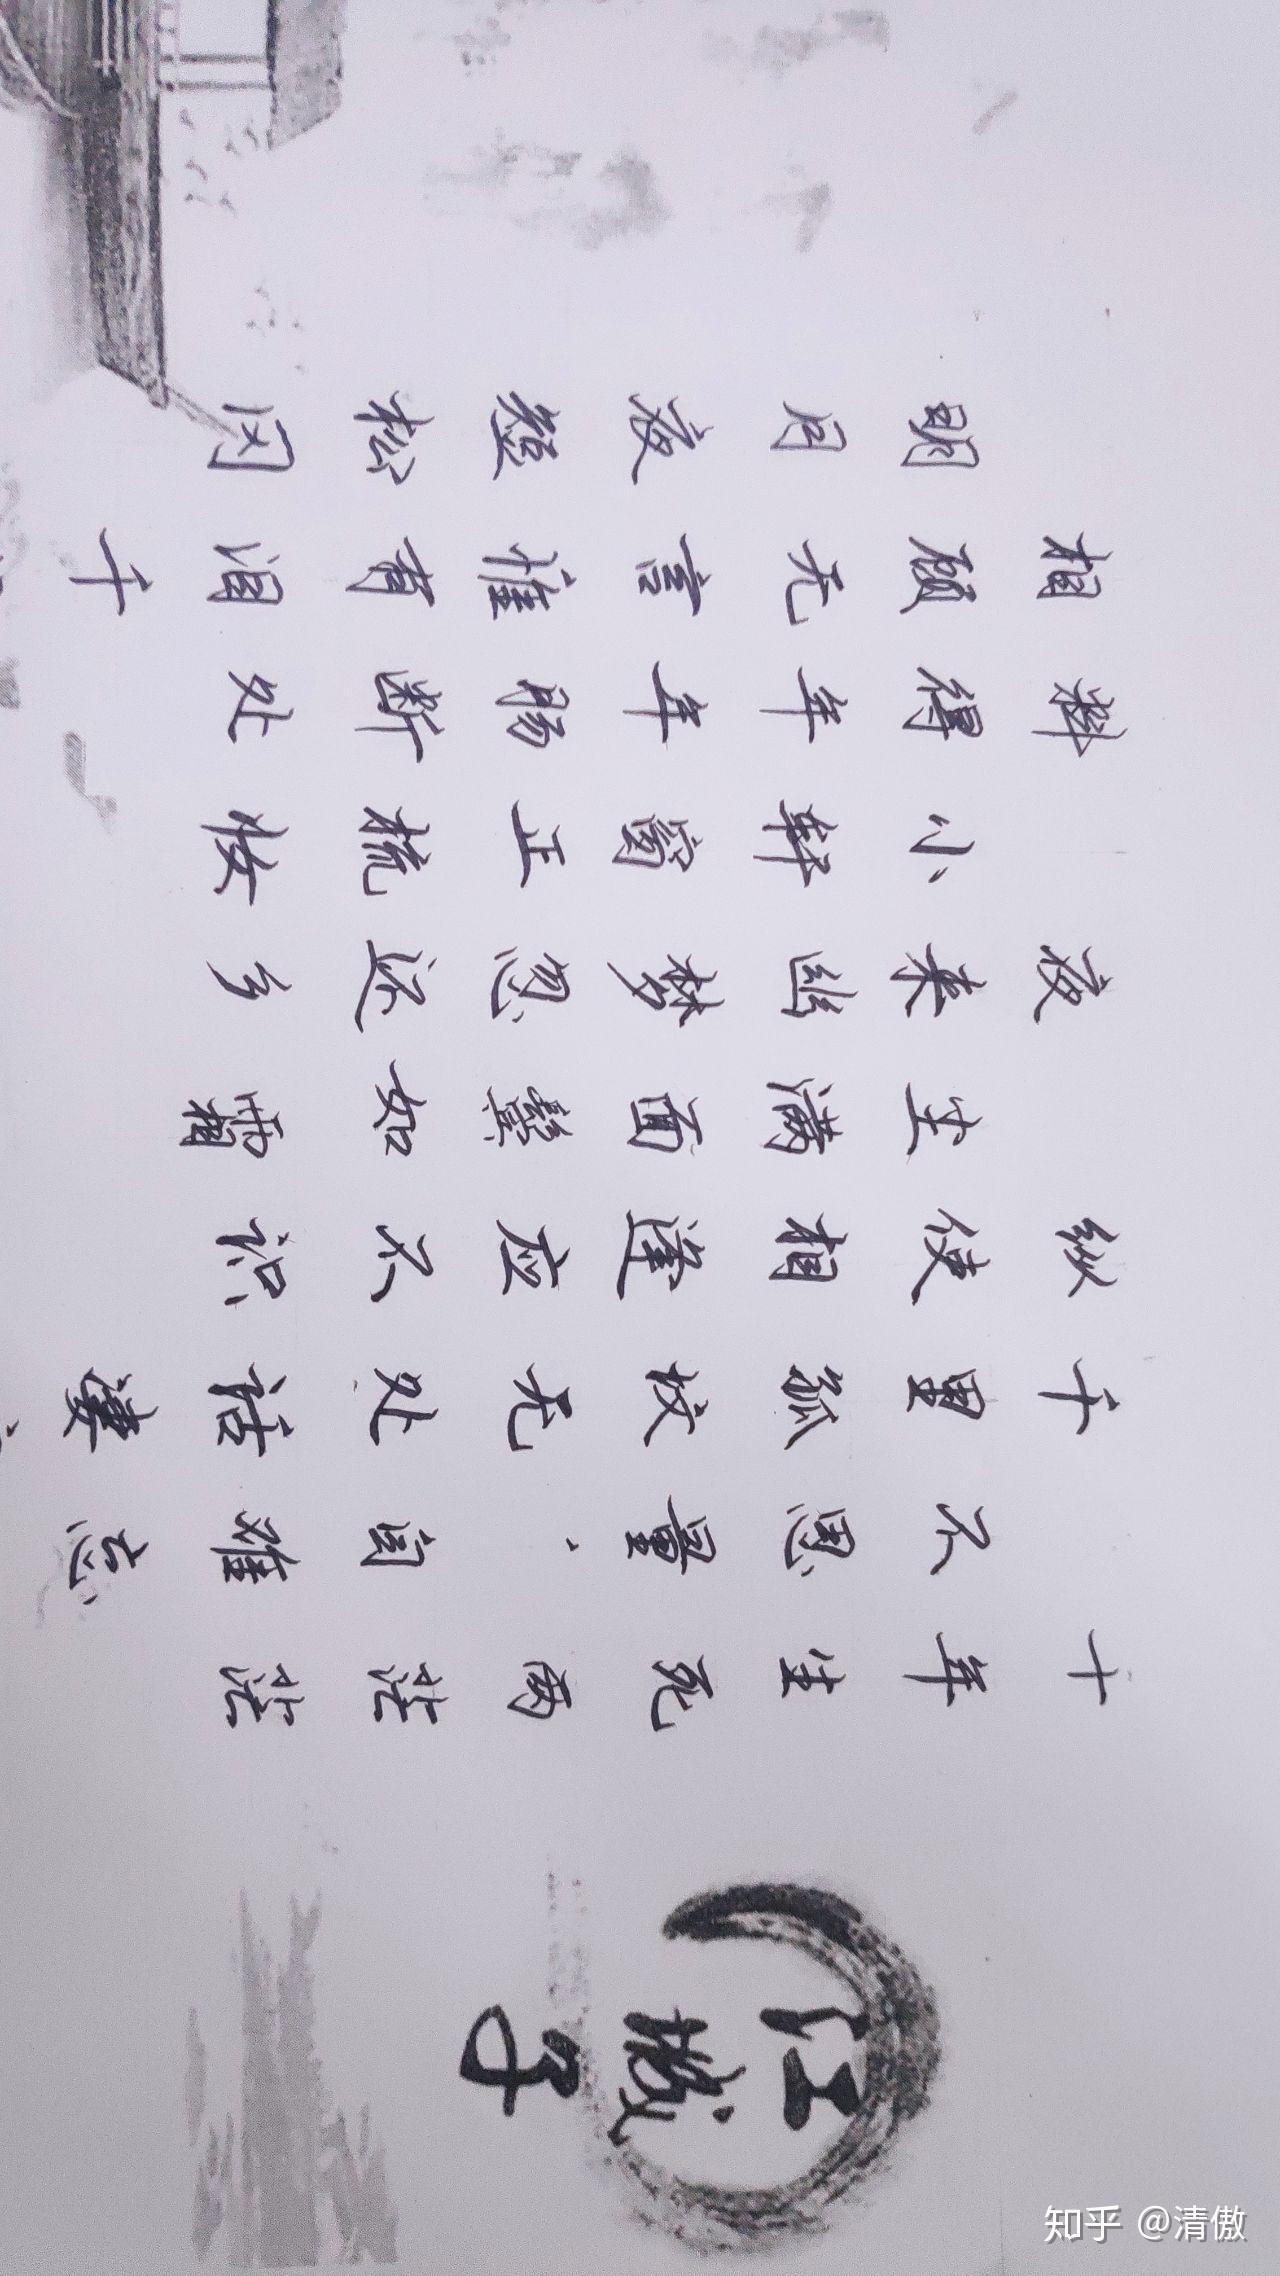 江城子
十年生死两茫茫
不思量·自难忘
千里孤坟无处话凄
纵使相逢应不识
尘满面鬓如霜
夜来幽梦忽还乡
小轩窗正梳妆
料得年年肠断处
相顾无言惟有泪千
明月夜短松冈
知乎 @清傲